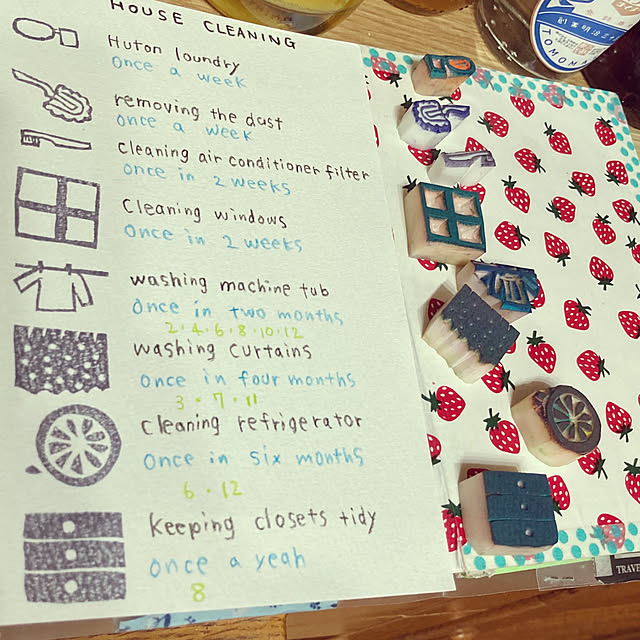 HOUSE CLEANING
Huton loundry
Once a week
removing the dust
Once a week
Cleaning air conditioner filter
Once in 2 weeks
Cleaning windows
Once in 2 weeks
washing machine tub
Once in two months
2・4・6・8・10・12
washing curtains
Once in four months
3・7・11
Cleaning refrigerator
Once in six months
6・12
Keeping closets tidy
once a yeah
8
TRAVE